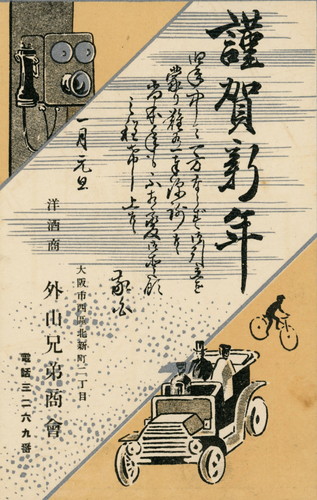 謹賀新年
旧年中は一方ならず御引立を
蒙り難有奉深謝候
尚本年も不相変御愛顧
之程希上候
敬白
一月元旦
洋酒商
大阪市西區北新町二丁目
外山兄弟商會
電話三一六九番